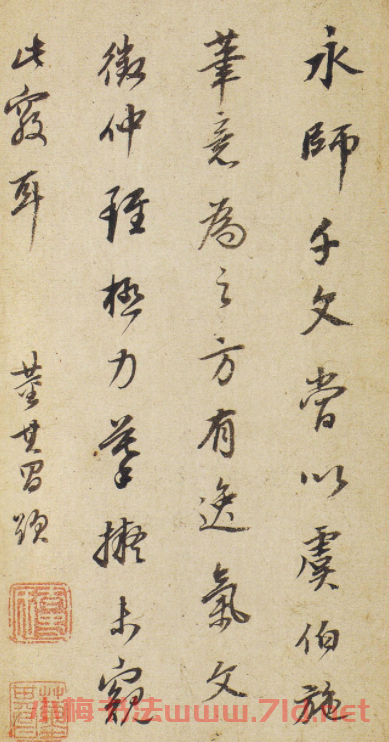 永師千文嘗以虞伯施
筆意為之方有逸氣文
徵仲雖極力摹擬未窺
此竅耳
董其昌題
小梅书法www.71d.net